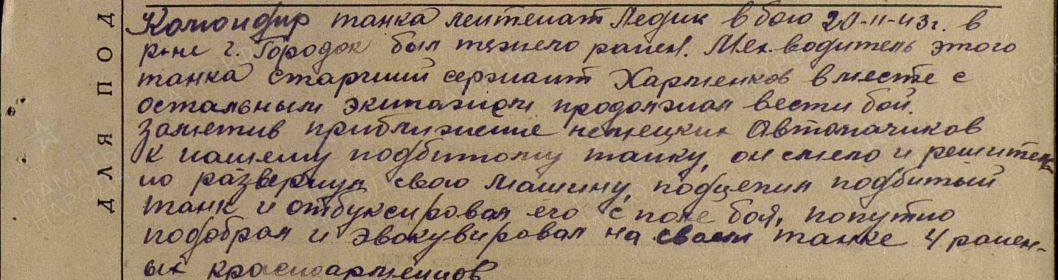 Командир танка лейтенант Ледик в бою 20-11-43г. в
р-не г. Городок был тяжело ранен. Мех-водитель этого
танка старший сержант Харченков вместе с
остальным экипажем продолжал вести бой.
Заметив приближение немецких автоматчиков
к нашему подбитому танку, он смело и решитель
но развернул свою машину, подцепил подбитый
танк и отбуксировал его с поле боя, попутно
подобрал и эвакуировал на своем танке 4 ранен-
ых красноармейцов
ДЛЯ ПОД